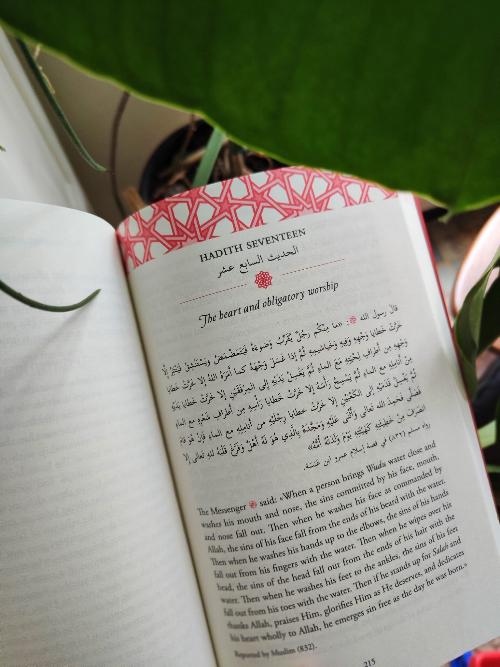 HADITH SEVENTEEN
الحديث السابع عشر
The heart and obligatory worship
قال رسول الله ﷺ: «ما مِنكُم رَجُلٌ يُقَرِّبُ وَضوءَهُ فَيَتَمَضمَضُ وَيَستَنشِقُ فَيَنتَثِرُ إلّا
خَرَّت خَطايا وَجهِهِ وَفيهِ وَخَياشيمِهِ ثُمَّ إذا غَسَلَ وَجهَهُ كَما أمَرَهُ اللهُ إلا خَرَّت خَطايا
وَجهِهِ مِن أطرافِ لِحيَتِهِ مَعَ الماءِ ثُمَّ يَغسِلُ يَدَيهِ إلى المِرفَقَينِ إلا خَرَّت خَطايا يَدَيهِ
مِن أنامِلِهِ مَعَ الماءِ ثُمَّ يَمسَحُ رَأسَهُ إلا خَرَّت خَطايا رَأسِهِ مِن أطرافِ شَعرِهِ مَعَ الماءِ
ثُمَّ يَغسِلُ قَدَمَيهِ إلى الكَعبَينِ إلا خَرَّت خَطايا رِجلَيهِ مِن أنامِلِهِ مَعَ الماءِ فَإن هُوَ قامَ
فَصَلّى فَحَمِدَ الله تعالى وَأثنى عَلَيهِ وَمَجَّدَهُ بِالَّذي هُوَ لَهُ أهلٌ وَفَرَّغَ قَلبَهُ لله تعالى إلا
انصَرَفَ مِن خَطيئَتِهِ كَهَيئَتِهِ يَومَ وَلَدَتهُ أُمُّهُ»
رواه مسلم (٨٣٢) في قصة إسلام عمرو ابن عَبَسَة.
The Messenger ﷺ said: «When a person brings Wudu water close and
washes his mouth and nose, the sins committed by his face, mouth,
and nose fall out. Then when he washes his face as commanded by
Allah, the sins of his face fall from the ends of his beard with the water.
Then when he washes his hands up to the elbows, the sins of his hands
fall out from his fingers with the water. Then when he wipes over his
head, the sins of the head fall out from the ends of his hair with the
water. Then when he washes his feet to the ankles, the sins of his feet
fall out from his toes with the water. Then if he stands up for Salah and
thanks Allah, praises Him, glorifies Him as He deserves, and dedicates
his heart wholly to Allah, he emerges sin free as the day he was born.»
Reported by Muslim (832).
215